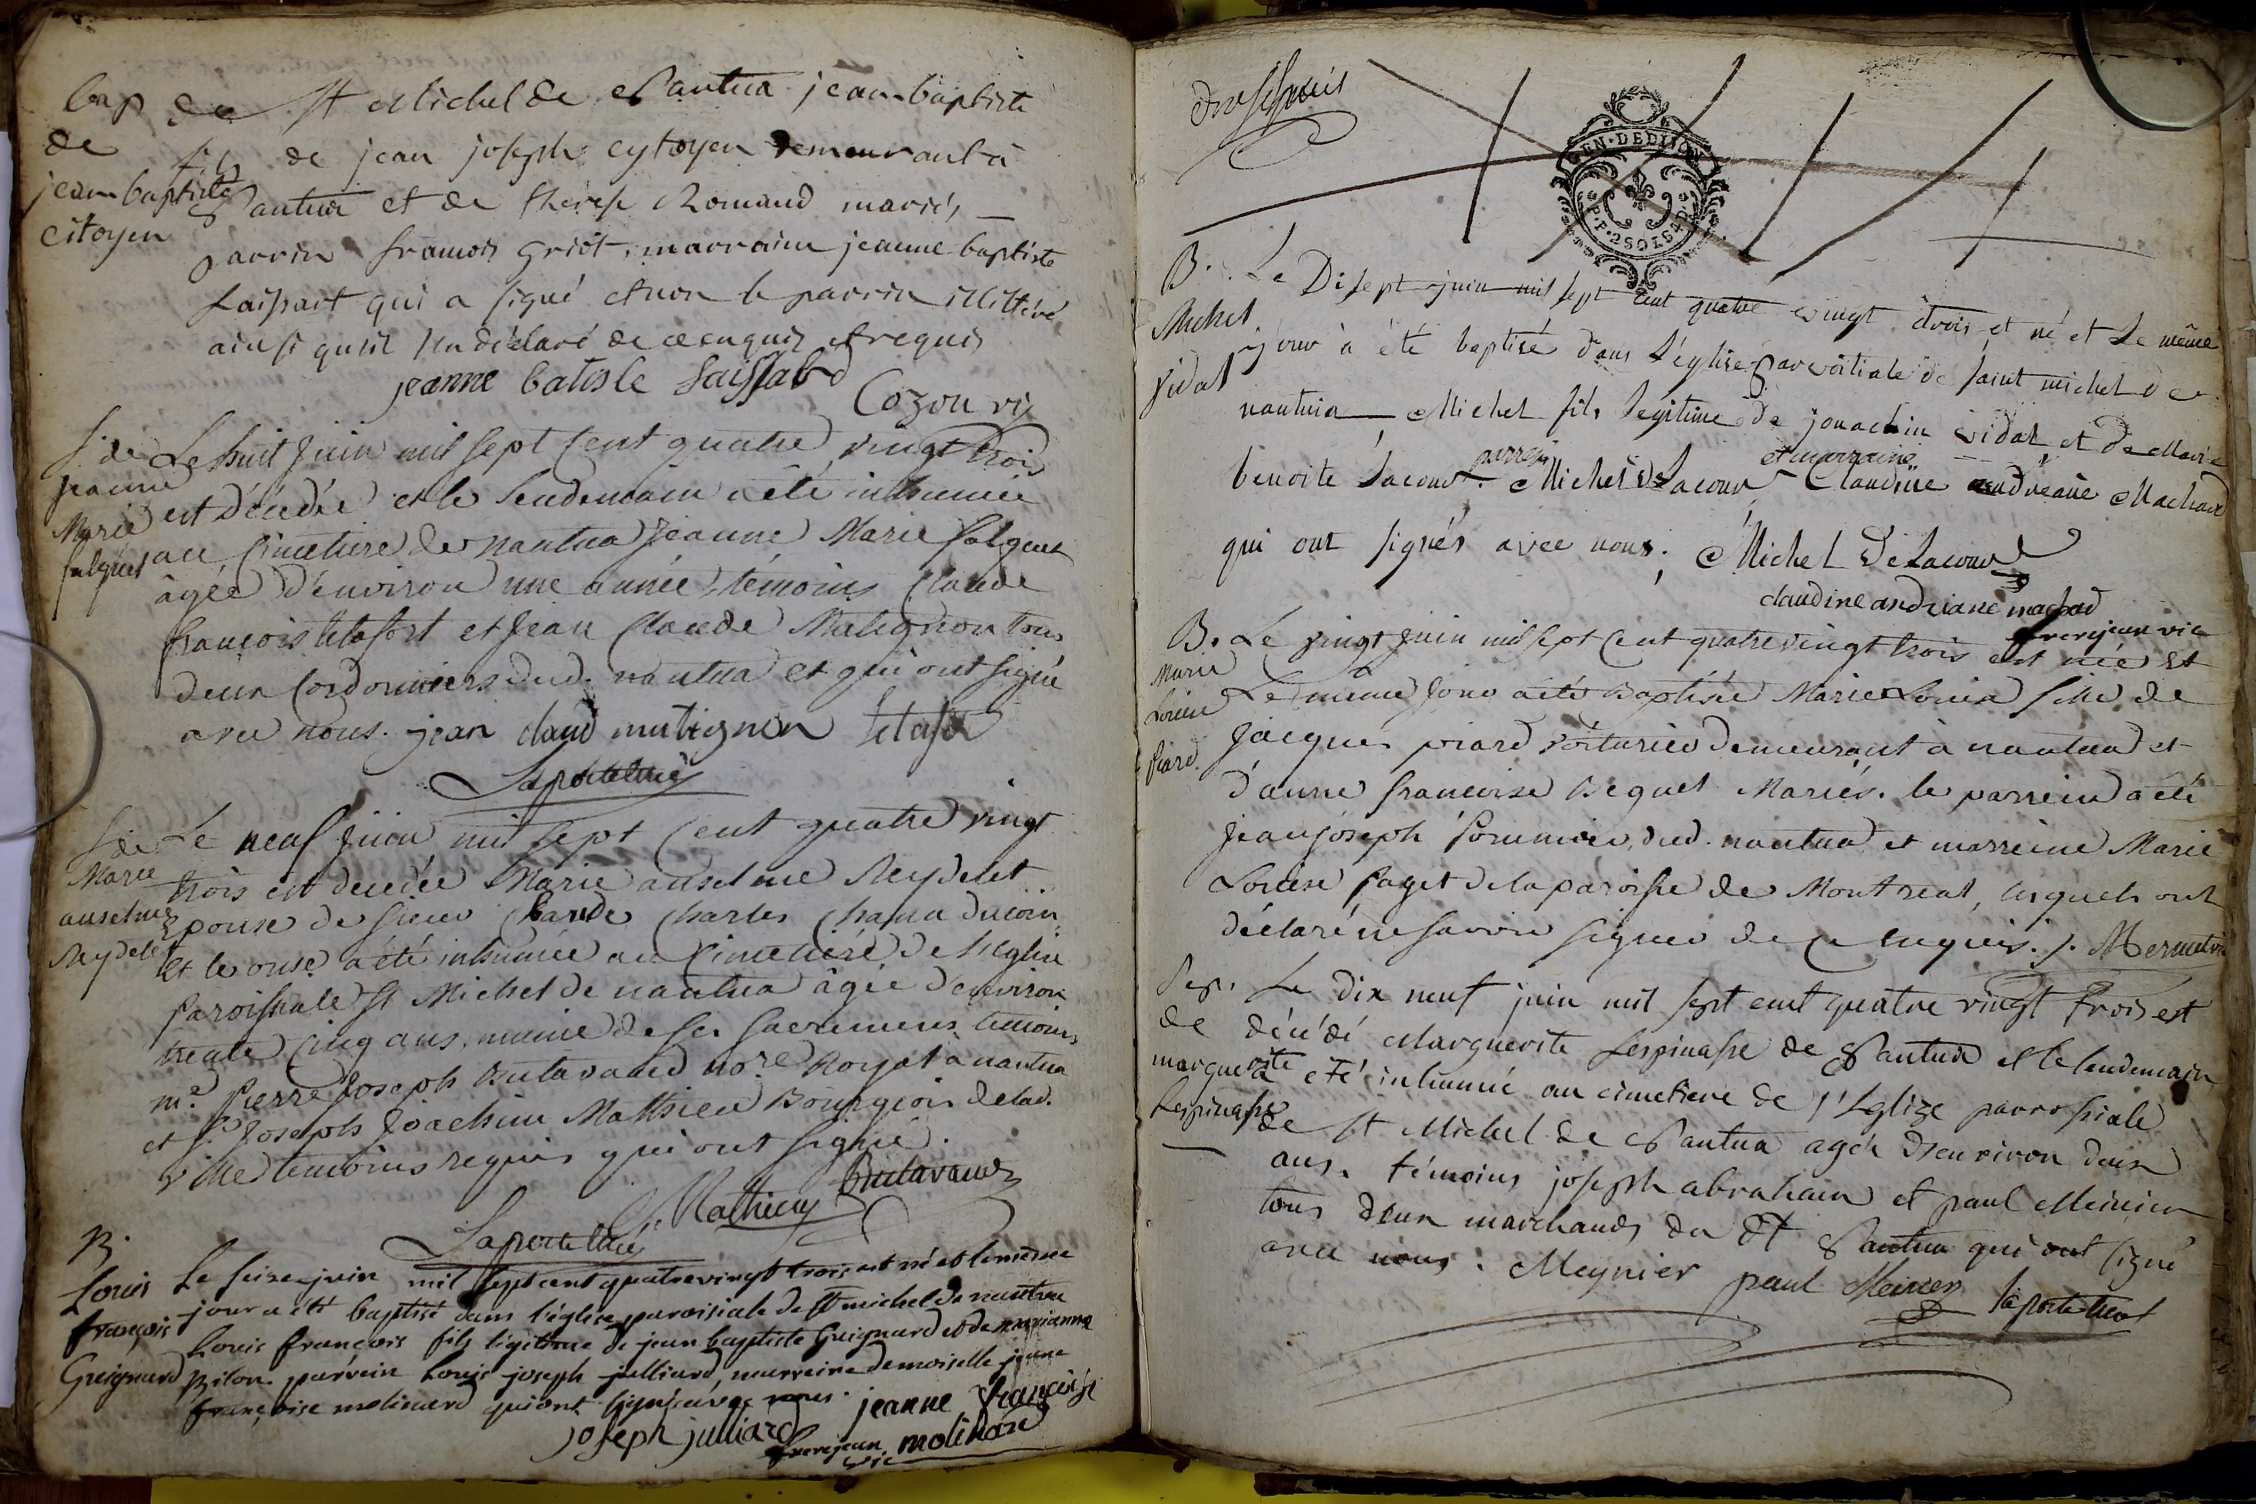 bap de St Michel de Nantua jean-baptiste
de
fils de jean joseph cytoyen demeurant à
jean baptiste
Nantua et de therese Romand mariés
citoyen
parrin francois griot, marraine jeanne-baptiste
Laissart qui a signé et non le parrin illitéré
ainsi qu'il l'a déclaré de ce enquis et requis
jeanne batiste Laissard
Cozon vic
S. de
Le huit Juin mil Sept Cent quatre vingt trois
jeanne
est décédée et le lendemain a été inhumée
Marie
au Cimetiere de nantua Jeanne Marie
âgée d'environ une année, témoins Claude
françois et Jean Claude Matignon tous
deux Cordonniers dud. nantua et qui ont signé
avec nous. jean claud matignon
S. de
Le neuf Juin mil Sept Cent quatre vingt
Marie
trois est decedée Marie anselme Reydelet
anselme
Epouse de sieur Claude Charles
Reydelet
et le onse a été inhumée au Cimetiere de l'Eglise
Paroissiale St Michel de nantua âgée d'environ
trente Cinq ans, munie de ses sacremens temoins
me. Pierre Joseph Butavand nore. Royal à nantua
et sr. Joseph Joachim Mathieu Bourgeois de lad.
ville temoins requis qui ont signé.
Butavand
Mathieu
B.
Louis
Le seize juin mil sept cent quatre vingt trois est né et le même
françois
jour a été baptisé dans l'église paroissiale de st michel de nantua
Louis françois fils légitime de jean baptiste Guignard et de marianne
Guignard
Bilon. parrein Louis joseph julliard, marreine demoiselle jeanne
françoise molinard qui ont signé avec nous. jeanne françoise
joseph julliard
frerejean molinard
vic
GEN. DE DIJON
P.P. 2 SOLS 4 D.
B. Le Disept juin mil sept cent quatre vingt trois et né et Le même
Michel
jour à été baptisé dans L'église paroitiale de saint michel de
vidal
nantuia Michel fils legitime de jouachin vidal et de Marie
parrein
et marraine
benoite Lacour. Michel DeLacour Claudine andreane Machard
qui ont signés avec nous. Michel DeLacour
claudine andriane machard
frerejean vic
B. Le vingt Juin mil sept Cent quatrevingt trois est née et
Marie
Le meme Jour a été Baptisée Marie Louise fille de
Louise
Jacques piard voiturier demeurant à nantua et
Piard.
d'anne francoise Beguet Mariés. le parrein a été
Jean joseph Sommier, dud. nantua et marreine Marie
Louise Paget de la paroisse de Montreal, lesquels ont
déclaré ne savoir signer de ce enquis.
Sep. Le dix neuf juin mil sept cent quatre vingt trois est
de
décédé Marguerite Lespinasse de Nantua et le lendemain
marguerite
a eté inhumé au cimetiere de l'Eglize parrossiale
Lespinasse
de St Michel de Nantua agée d'environ deux
ans. témoins joseph abraham et paul Meinier
tous deux marchands du dt Nantua qui ont signé
avec nous : Meynier paul Meinier